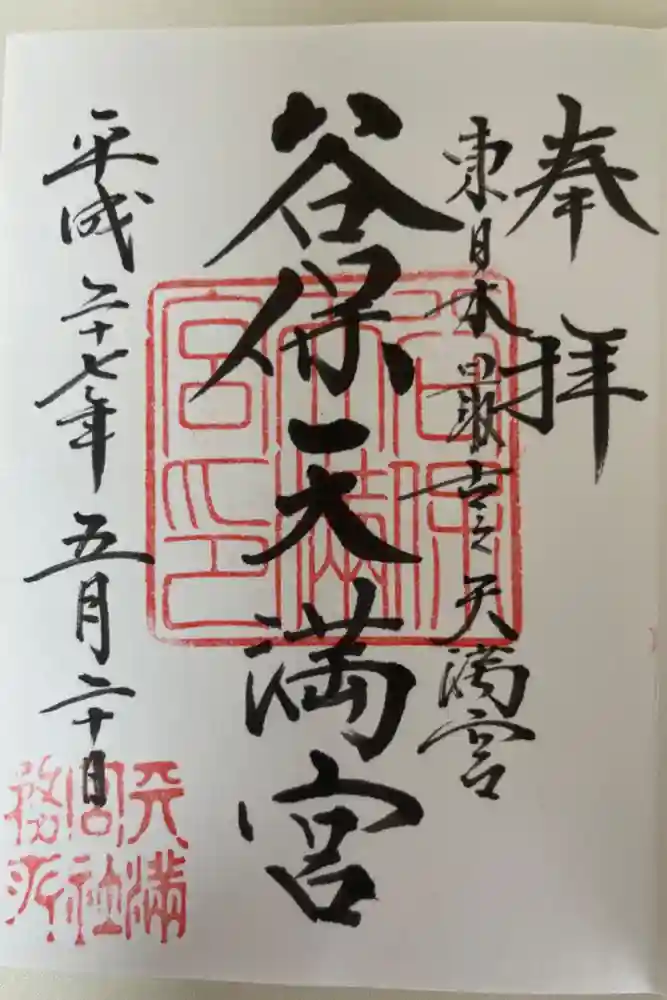 奉拝
東日本最古之天満宮
谷保天満宮
平成二十七年五月二十日
谷保天満宮印
天満宮社務所